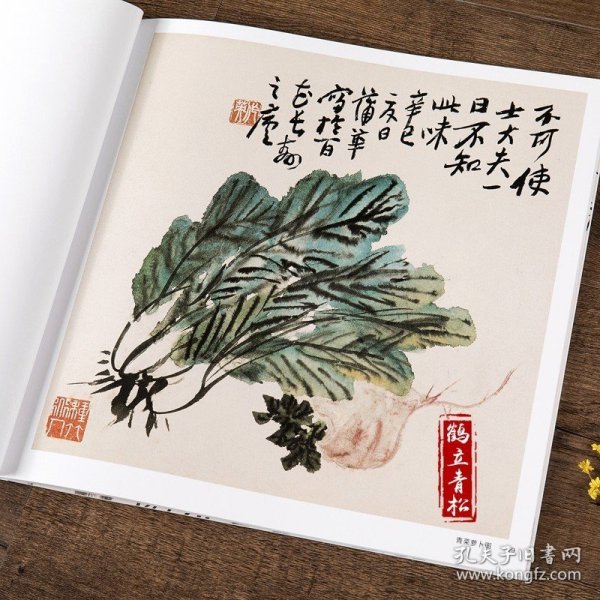 不可使
士大夫一
日不知
此味
辛巳
夏日
蒲华
写于百
花长寿
之庵
鹤立青松
青菜萝卜图
孔夫子旧书网
www.kongfz.com